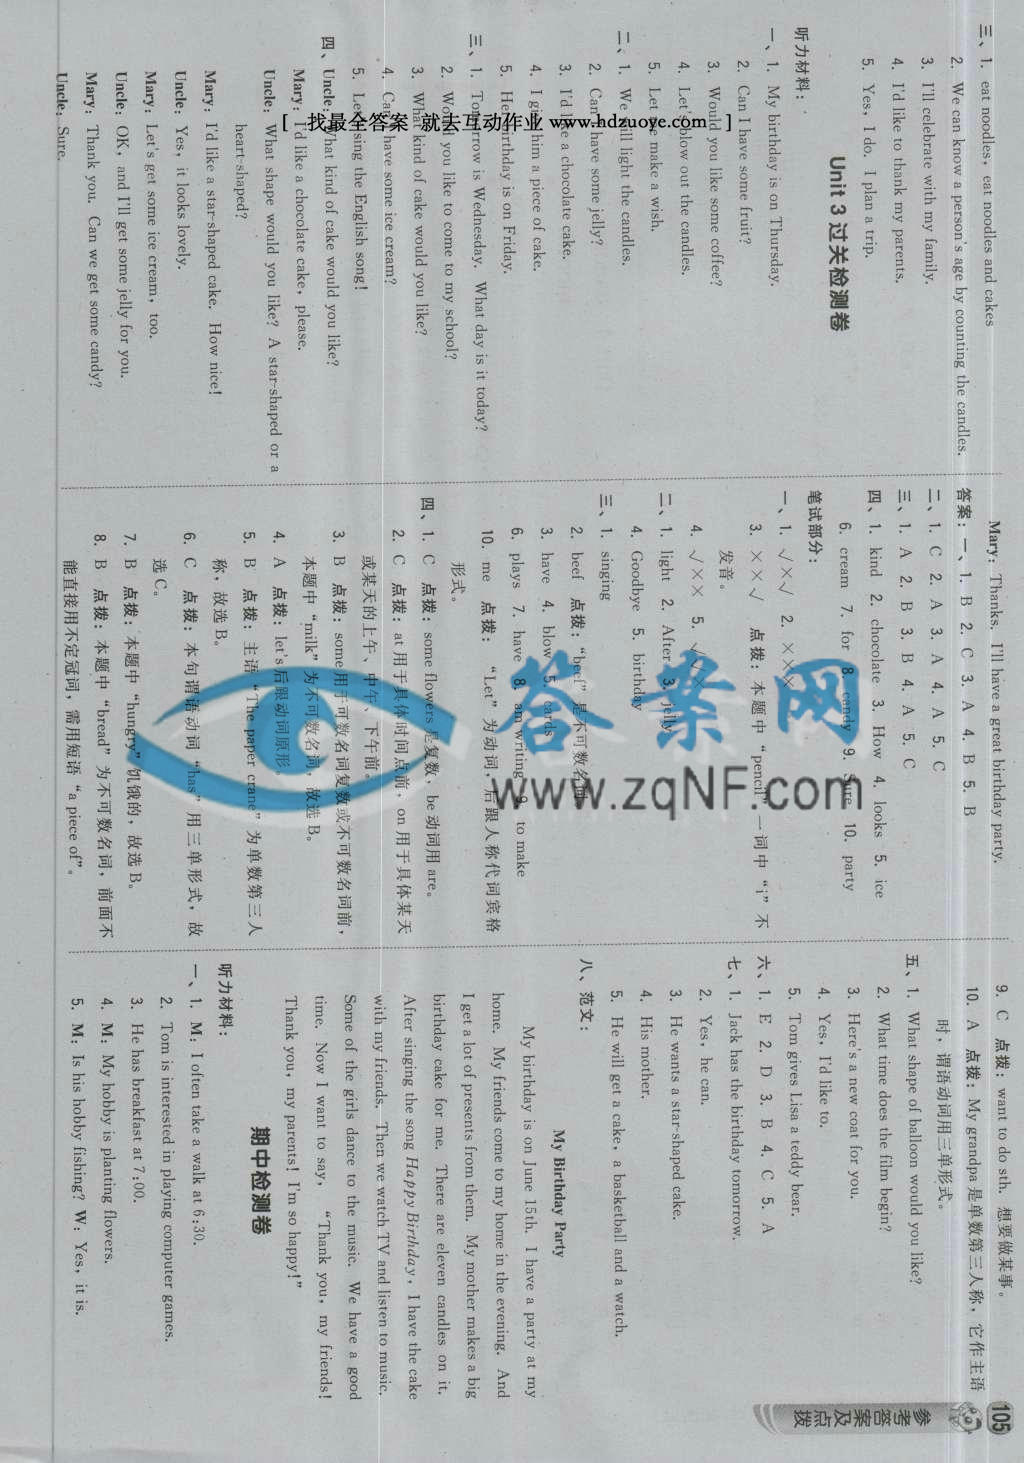 三、1. eat noodles, eat noodles and cakes
2. We can know a person's age by counting the candles.
3. I'll celebrate with my family.
4. I'd like to thank my parents.
5. Yes, I do. I plan a trip.
Unit 3 过关检测卷
听力材料：
一、1. My birthday is on Thursday.
2. Can I have some fruit?
3. Would you like some coffee?
4. Let's blow out the candles.
5. Let me make a wish.
二、1. We will light the candles.
2. Can I have some jelly?
3. I'd like a chocolate cake.
4. I give him a piece of cake.
5. Her birthday is on Friday.
三、1. Tomorrow is Wednesday. What day is it today?
2. Would you like to come to my school?
3. What kind of cake would you like?
4. Can I have some ice cream?
5. Let's sing the English song!
四、Uncle: What kind of cake would you like?
Mary: I'd like a chocolate cake, please.
Uncle: What shape would you like? A star-shaped or a
heart-shaped?
Mary: I'd like a star-shaped cake. How nice!
Uncle: Yes, it looks lovely.
Mary: Let's get some ice cream, too.
Uncle: OK, and I'll get some jelly for you.
Mary: Thank you. Can we get some candy?
Uncle: Sure.
Mary: Thanks. I'll have a great birthday party.
答案：一、1. B 2. C 3. A 4. B 5. B
二、1. C 2. A 3. A 4. A 5. C
三、1. A 2. B 3. B 4. A 5. C
四、1. kind 2. chocolate 3. How 4. looks 5. ice
6. cream 7. for 8. candy 9. Sure 10. party
笔试部分：
一、1. √×√ 2. ×××
3. ××√ 点拨：本题中“pencil”一词中“i”不
发音。
4. √×× 5. √√×
二、1. light 2. After 3. jelly
4. Goodbye 5. birthday
三、1. singing
2. beef 点拨：“beef”是不可数名词。
3. have 4. blow 5. cards
6. plays 7. have 8. am writing 9. to make
10. me 点拨：“Let”为动词，后跟人称代词宾格
形式。
四、1. C 点拨：some flowers 是复数，be 动词用 are。
2. C 点拨：at 用于具体时间点前，on 用于具体某天
或某天的上午、中午、下午前。
3. B 点拨：some 用于可数名词复数或不可数名词前，
本题中“milk”为不可数名词，故选 B。
4. A 点拨：let's 后跟动词原形。
5. B 点拨：主语“The paper crane”为单数第三人
称，故选 B。
6. C 点拨：本句谓语动词“has”用三单形式，故
选 C。
7. B 点拨：本题中“hungry”饥饿的，故选 B。
8. B 点拨：本题中“bread”为不可数名词，前面不
能直接用不定冠词，需用短语“a piece of”。
9. C 点拨：want to do sth. 想要做某事。
10. A 点拨：My grandpa 是单数第三人称，它作主语
时，谓语动词用三单形式。
五、1. What shape of balloon would you like?
2. What time does the film begin?
3. Here's a new coat for you.
4. Yes, I'd like to.
5. Tom gives Lisa a teddy bear.
六、1. E 2. D 3. B 4. C 5. A
七、1. Jack has the birthday tomorrow.
2. Yes, he can.
3. He wants a star-shaped cake.
4. His mother.
5. He will get a cake, a basketball and a watch.
八、范文：
My Birthday Party
My birthday is on June 15th. I have a party at my
home. My friends come to my home in the evening. And
I get a lot of presents from them. My mother makes a big
birthday cake for me. There are eleven candles on it.
After singing the song Happy Birthday, I have the cake
with my friends. Then we watch TV and listen to music.
Some of the girls dance to the music. We have a good
time. Now I want to say, “Thank you, my friends!
Thank you, my parents! I'm so happy!”
期中检测卷
听力材料：
一、1. M: I often take a walk at 6:30.
2. Tom is interested in playing computer games.
3. He has breakfast at 7:00.
4. M: My hobby is planting flowers.
5. M: Is his hobby fishing? W: Yes, it is.
参考答案及点拨
105
[ 找最全答案 就去互动作业 www.hdzuoye.com ]
答案网
www.zqNF.com